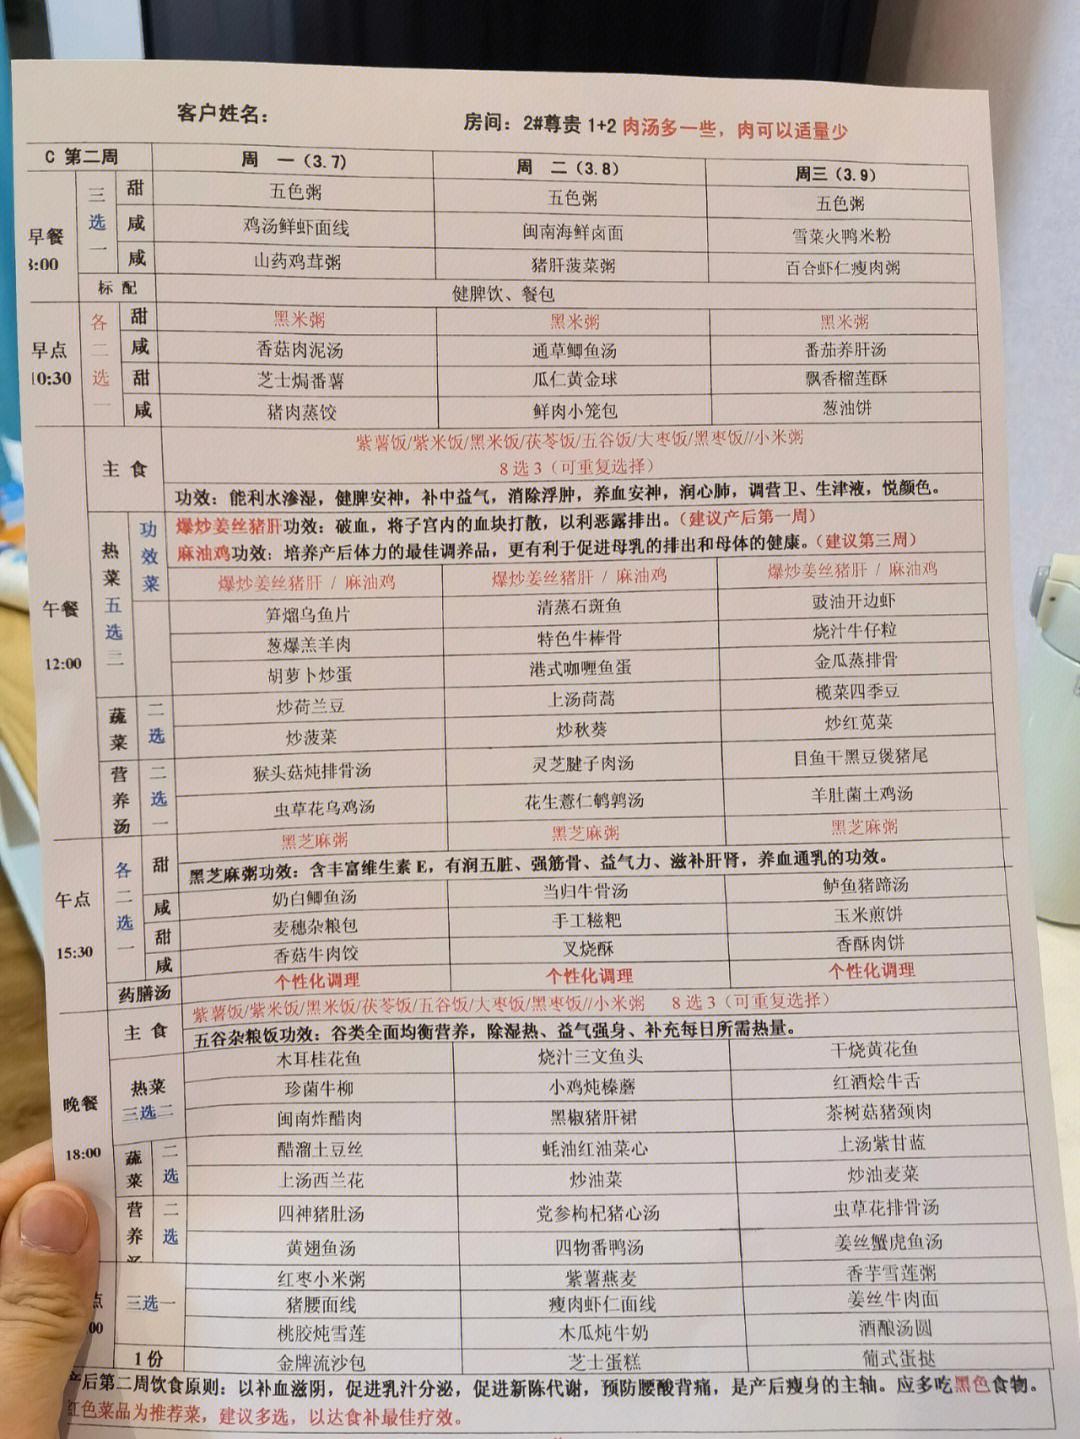 客户姓名：
房间：2#尊贵 1+2 肉汤多一些，肉可以适量少
C 第二周 周 一（3.7） 周 二（3.8） 周三（3.9）
早餐 :00 三选一 甜 五色粥 五色粥 五色粥
咸 鸡汤鲜虾面线 闽南海鲜卤面 雪菜火鸭米粉
咸 山药鸡茸粥 猪肝菠菜粥 百合虾仁瘦肉粥
标 配 健脾饮、餐包
早点 10:30 各二选一 甜 黑米粥 黑米粥 黑米粥
咸 香菇肉泥汤 通草鲫鱼汤 番茄养肝汤
甜 芝士焗番薯 瓜仁黄金球 飘香榴莲酥
咸 猪肉蒸饺 鲜肉小笼包 葱油饼
午餐 12:00 主 食 紫薯饭/紫米饭/黑米饭/茯苓饭/五谷饭/大枣饭/黑枣饭//小米粥
8 选 3（可重复选择）
功效：能利水渗湿，健脾安神，补中益气，消除浮肿，养血安神，润心肺，调营卫、生津液，悦颜色。
热菜五选三 功效菜 爆炒姜丝猪肝功效：破血，将子宫内的血块打散，以利恶露排出。（建议产后第一周）
麻油鸡功效：培养产后体力的最佳调养品，更有利于促进母乳的排出和母体的健康。（建议第三周）
爆炒姜丝猪肝 / 麻油鸡 爆炒姜丝猪肝 / 麻油鸡 爆炒姜丝猪肝 / 麻油鸡
笋熘乌鱼片 清蒸石斑鱼 豉油开边虾
葱爆羔羊肉 特色牛棒骨 烧汁牛仔粒
胡萝卜炒蛋 港式咖喱鱼蛋 金瓜蒸排骨
蔬菜 二选 炒荷兰豆 上汤茼蒿 榄菜四季豆
炒菠菜 炒秋葵 炒红苋菜
营养汤 二选一 猴头菇炖排骨汤 灵芝腱子肉汤 目鱼干黑豆煲猪尾
虫草花乌鸡汤 花生薏仁鹌鹑汤 羊肚菌土鸡汤
午点 15:30 各二选一 甜 黑芝麻粥 黑芝麻粥 黑芝麻粥
黑芝麻粥功效：含丰富维生素 E，有润五脏、强筋骨、益气力、滋补肝肾，养血通乳的功效。
咸 奶白鲫鱼汤 当归牛骨汤 鲈鱼猪蹄汤
甜 麦穗杂粮包 手工糍粑 玉米煎饼
咸 香菇牛肉饺 叉烧酥 香酥肉饼
药膳汤 个性化调理 个性化调理 个性化调理
晚餐 18:00 主 食 紫薯饭/紫米饭/黑米饭/茯苓饭/五谷饭/大枣饭/黑枣饭//小米粥 8 选 3（可重复选择）
五谷杂粮饭功效：谷类全面均衡营养，除湿热、益气强身、补充每日所需热量。
热菜 三选二 木耳桂花鱼 烧汁三文鱼头 干烧黄花鱼
珍菌牛柳 小鸡炖榛蘑 红酒烩牛舌
闽南炸醋肉 黑椒猪肝裙 茶树菇猪颈肉
蔬菜 二选 醋溜土豆丝 蚝油红油菜心 上汤紫甘蓝
上汤西兰花 炒油菜 炒油麦菜
营养 二选 四神猪肚汤 党参枸杞猪心汤 虫草花排骨汤
黄翅鱼汤 四物番鸭汤 姜丝蟹虎鱼汤
点 00 三选一 红枣小米粥 紫薯燕麦 香芋雪莲粥
猪腰面线 瘦肉虾仁面线 姜丝牛肉面
桃胶炖雪莲 木瓜炖牛奶 酒酿汤圆
1 份 金牌流沙包 芝士蛋糕 葡式蛋挞
产后第二周饮食原则：以补血滋阴，促进乳汁分泌，促进新陈代谢，预防腰酸背痛，是产后瘦身的主轴。应多吃黑色食物。
红色菜品为推荐菜，建议多选，以达食补最佳疗效。